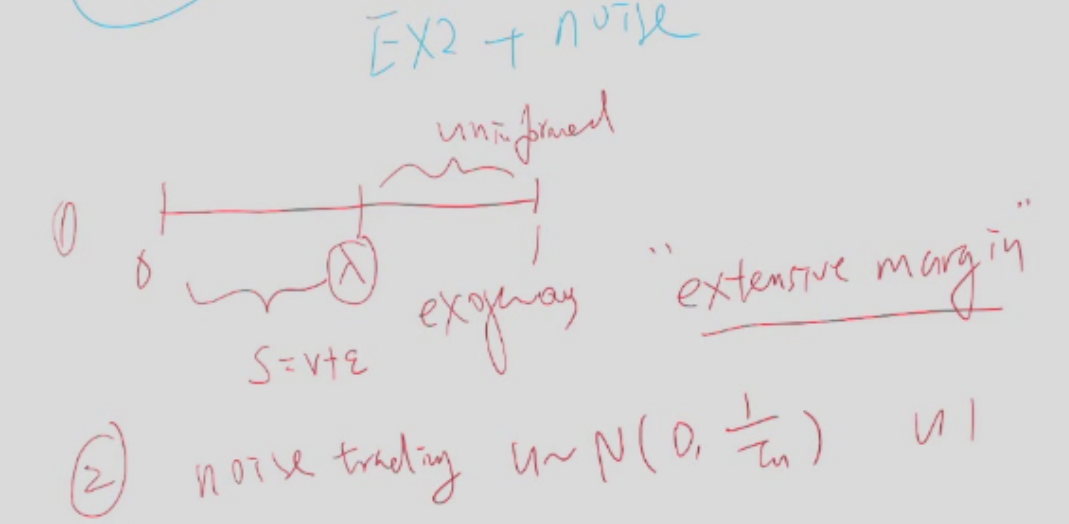 EX2 + noise
uninformed
①
0 λ 1
exogenous "extensive margin"
S=v+ε
② noise trading u~N(0, 1/τu) u1